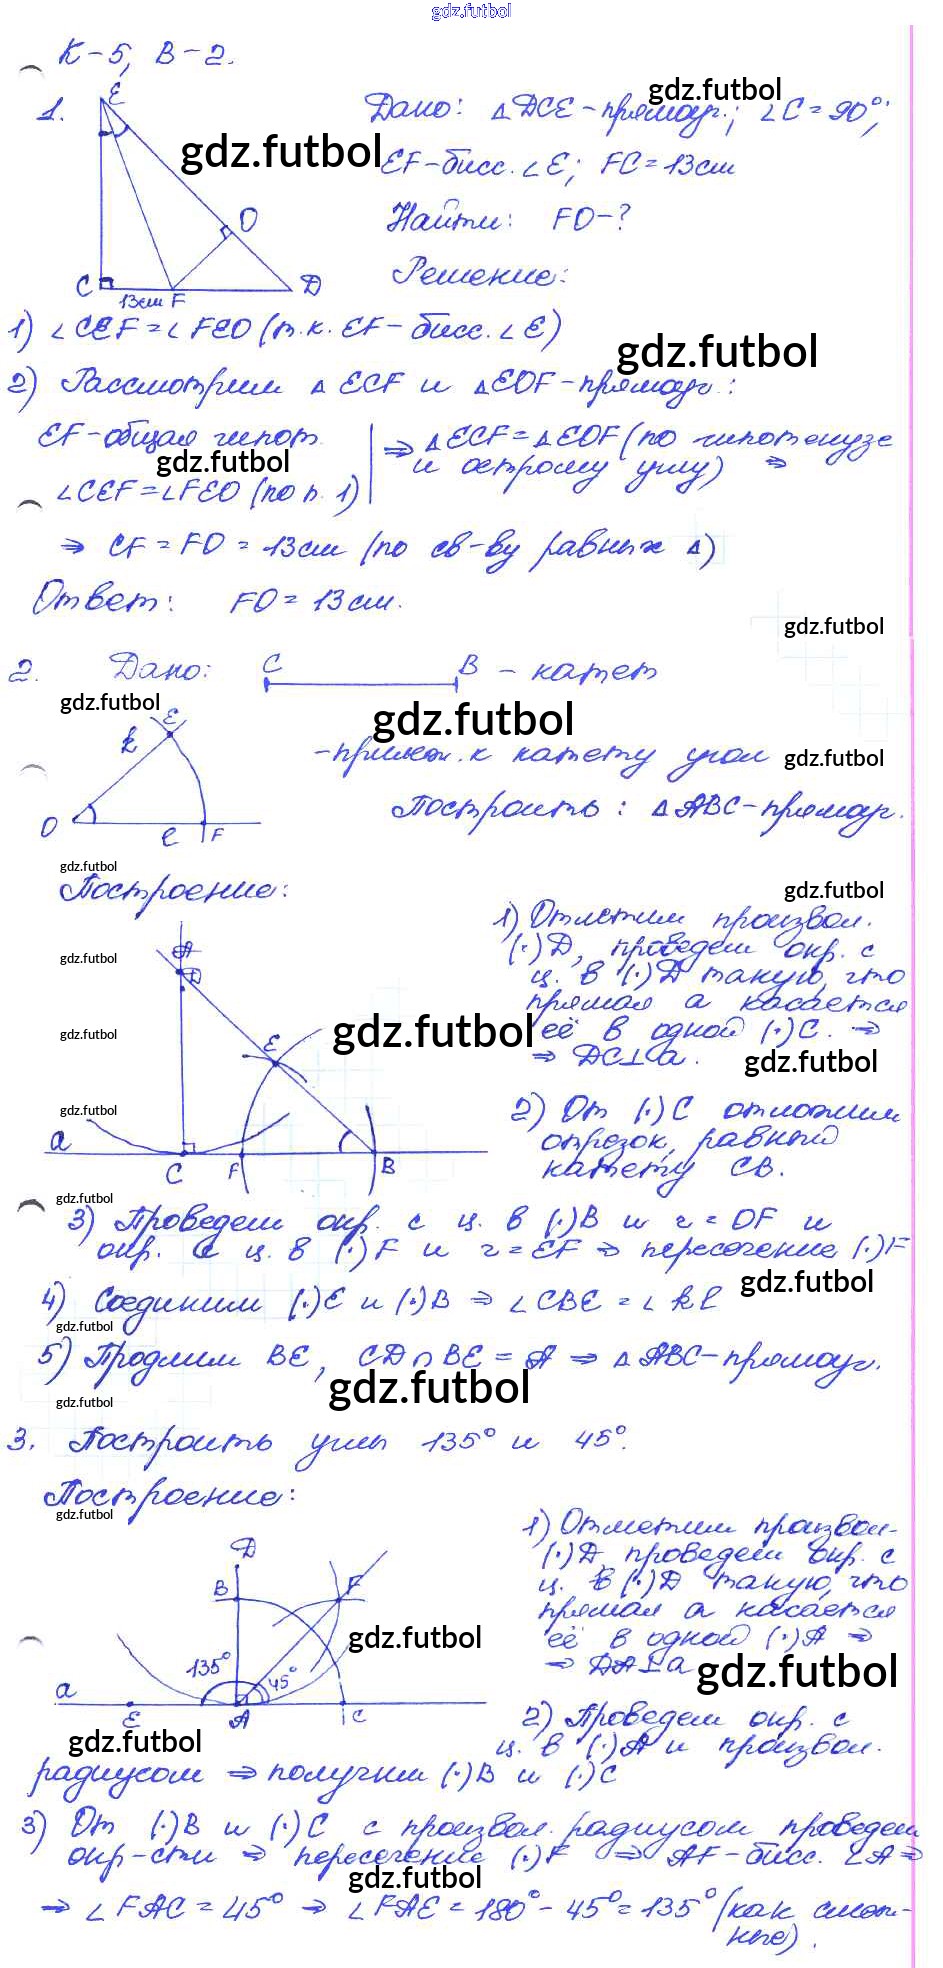 gdz.futbol
К-5, В-2.
1.
E
O
C
D
13см F
Дано: △DCE-прямоуг.; ∠C=90°;
gdz.futbol
gdz.futbol
EF-бисс. ∠E; FC=13см
Найти: FO-?
Решение:
1) ∠CEF=∠FEO (т.к. EF-бисс. ∠E)
gdz.futbol
2) Рассмотрим △ECF и △EOF-прямоуг.:
EF-общая гипот.
gdz.futbol
∠CEF=∠FEO (по п. 1)
⇒ △ECF=△EOF (по гипотенузе
и острому углу) ⇒
⇒ CF=FO=13см (по св-ву равных △)
Ответ: FO=13см.
gdz.futbol
2. Дано: C B - катет
gdz.futbol
gdz.futbol
k E
O l F
-прилеж. к катету угол
gdz.futbol
Построить: △ABC-прямоуг.
gdz.futbol
Построение:
gdz.futbol
A
D
E
a
C F B
gdz.futbol
gdz.futbol
gdz.futbol
gdz.futbol
1) Отметим произвол.
(·)D, проведем окр. с
ц. в (·)D такую, что
прямая a касается
её в одной (·)C. ⇒
⇒ DC⊥a.
gdz.futbol
2) От (·)C отложим
отрезок, равный
катету CB.
gdz.futbol
3) Проведем окр. с ц. в (·)B и r=OF и
окр. с ц. в (·)F и r=EF ⇒ пересечение (·)F
gdz.futbol
4) Соединим (·)E и (·)B ⇒ ∠CBE=∠kl
gdz.futbol
5) Продлим BE, CD∩BE=A ⇒ △ABC-прямоуг.
gdz.futbol
gdz.futbol
3. Построить углы 135° и 45°.
Построение:
gdz.futbol
D
B F
135° 45°
a
E A C
gdz.futbol
gdz.futbol
1) Отметим произвол-
(·)D, проведем окр. с
ц. в (·)D такую, что
прямая a касается
её в одной (·)A ⇒
⇒ DA⊥a
gdz.futbol
2) Проведем окр. с
ц. в (·)A и произвол.
радиусом ⇒ получим (·)B и (·)C
3) От (·)B и (·)C с произвол. радиусом проведем
окр-сти ⇒ пересечение (·)F ⇒ AF-бисс. ∠A ⇒
gdz.futbol
⇒ ∠FAC=45° ⇒ ∠FAE=180°-45°=135° (как смеж-
ные).